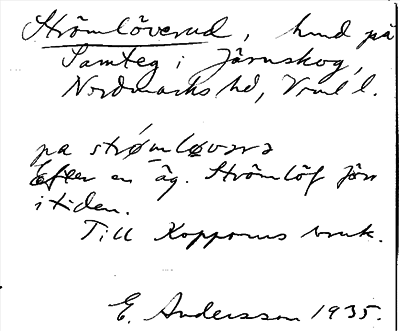 Strömlöverud, hmd på
Samteg i Järnskog,
Nordmarks hd, Vrml l.
pa strø̄mløvərə
Efter en äg. Strömlöf förr
i tiden.
Till Kopporns bruk.
E. Andersson 1935.